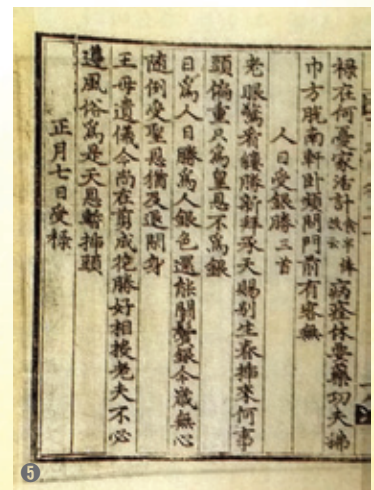 祿在何憂家活計食半俸故云病痊休要藥功夫
巾方脫南軒卧頻問門前有客無
人日受銀勝三首
老眼驚看鏤勝新拜承天賜别生春揷來何事
頭偏重只爲皇恩不爲銀
日爲人日勝爲人銀色還能鬪鬢銀今歲無心
隨例受聖恩猶及退閑身
王母遺儀今尚在剪成花勝好相授老夫不必
遵風俗爲是天恩暫揷頭
正月七日受祿
5